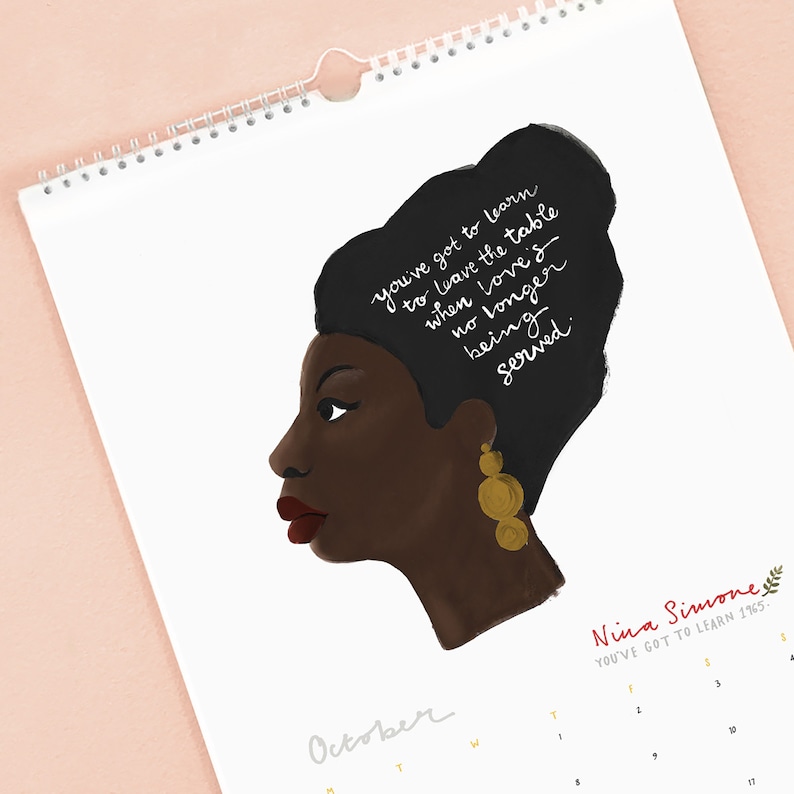 you've got to learn
to leave the table
when love's
no longer
being
served.
Nina Simone
YOU'VE GOT TO LEARN 1965.
October
M T W T F S S
1 2 3 4
8 9 10
17